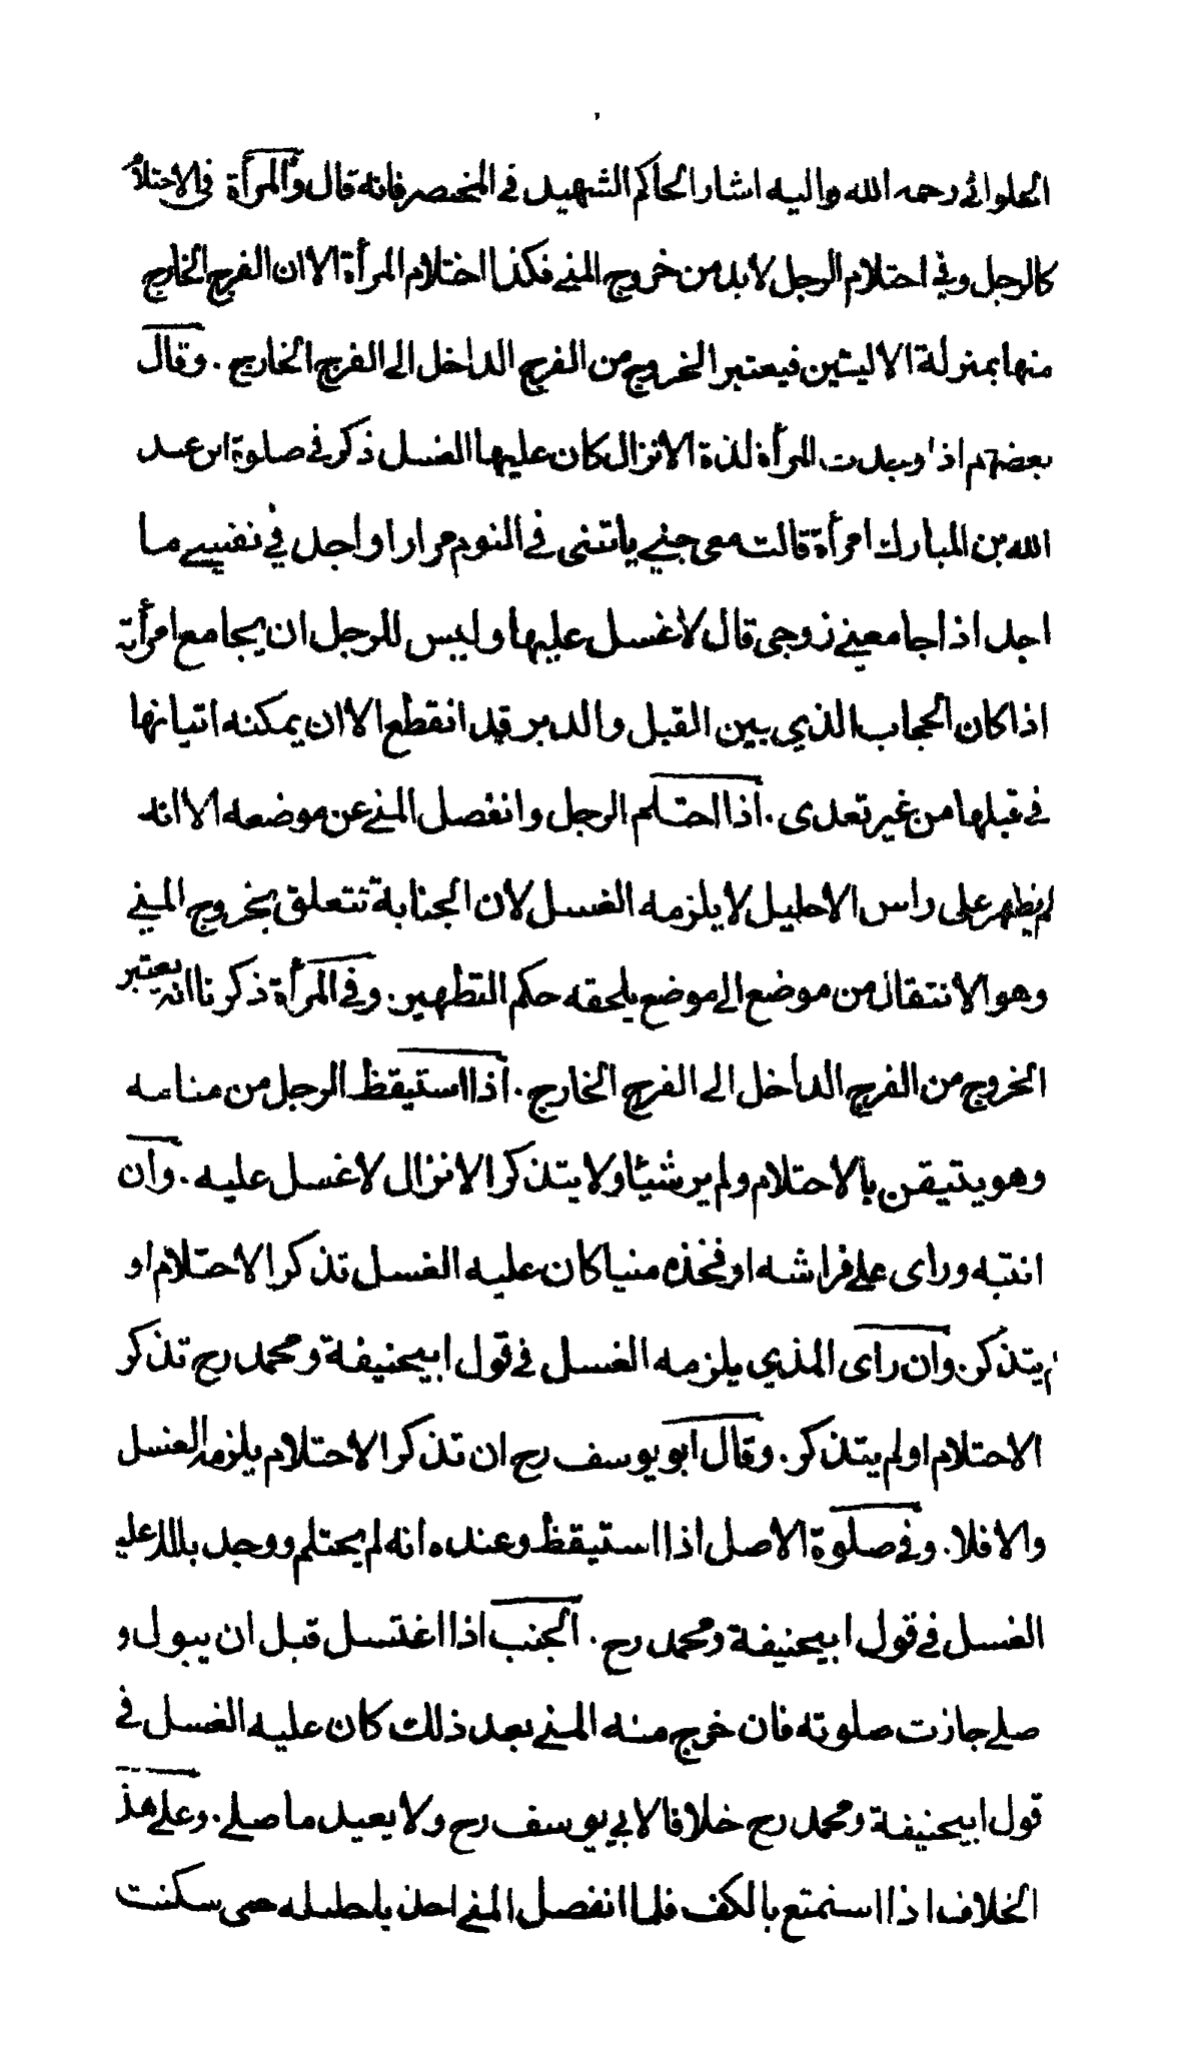 الحلوائي رحمه الله واليه اشار الحاكم الشهيد في المختصر فانه قال والمرأة في الاحتلام
كالرجل وفي احتلام الرجل لابد من خروج المني فكذا احتلام المرأة الا ان الفرج الخارج
منها بمنزلة الاليتين فيعتبر الخروج من الفرج الداخل الى الفرج الخارج . وقال
بعضهم اذا وجدت المرأة لذة الانزال كان عليها الغسل ذكر في صلوة ابن عبد
الله بن المبارك امرأة قالت معي جني ياتني في النوم مرارا واجد في نفسي ما
اجد اذا جامعني زوجي قال لا غسل عليها وليس للرجل ان يجامع امرأته
اذا كان الحجاب الذي بين القبل والدبر قد انقطع الا ان يمكنه اتيانها
في قبلها من غير تعدى . اذا احتلم الرجل وانفصل المني عن موضعه الا انه
لم يظهر على راس الاحليل لا يلزمه الغسل لان الجنابة تتعلق بخروج المني
وهو الانتقال من موضع الى موضع يلحقه حكم التطهير . وفي المرأة ذكرنا انه يعتبر
الخروج من الفرج الداخل الى الفرج الخارج . اذا استيقظ الرجل من منامه
وهو يتيقن بالاحتلام ولم ير شيئا ولا يتذكر الانزال لا غسل عليه . وان
انتبه وراى على فراشه او فخذه منيا كان عليه الغسل تذكر الاحتلام او
لم يتذكر . وان راى المذي يلزمه الغسل في قول ابيحنيفة ومحمد رح تذكر
الاحتلام او لم يتذكر . وقال ابو يوسف رح ان تذكر الاحتلام يلزمه الغسل
والا فلا . وفي صلوة الاصل اذا استيقظ وعنده انه لم يحتلم ووجد بللا عليه
الغسل في قول ابيحنيفة ومحمد رح . الجنب اذا اغتسل قبل ان يبول و
صلى جازت صلوته فان خرج منه المني بعد ذلك كان عليه الغسل في
قول ابيحنيفة ومحمد رح خلافا لابي يوسف رح ولا يعيد ما صلى . وعلى هذا
الخلاف اذا استمتع بالكف فلما انفصل المني اخذ باحليله حتى سكنت